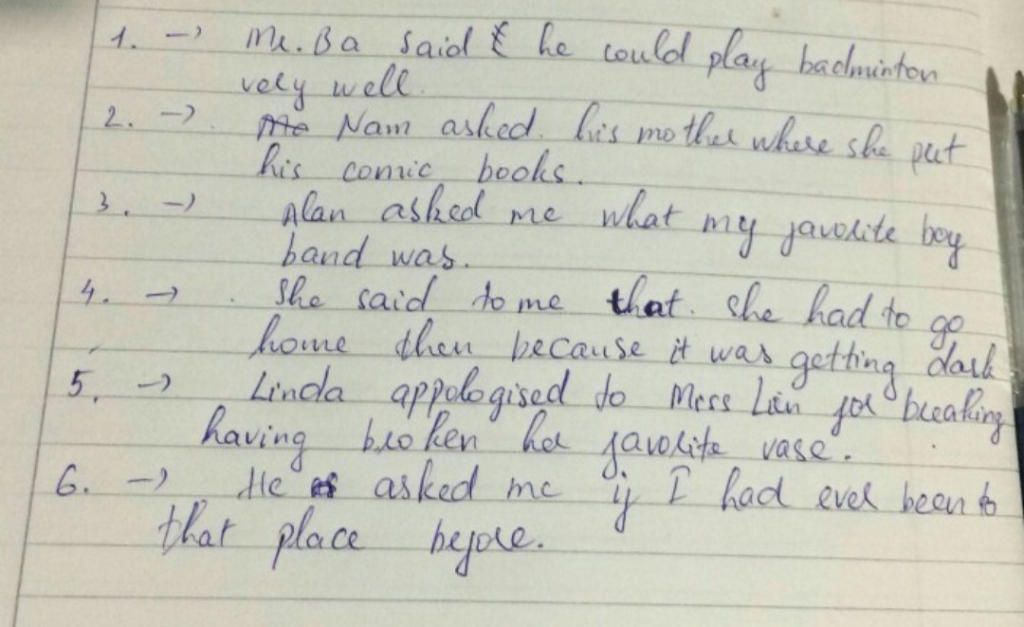 1. -> Mr. Ba said he could play badminton
very well.
2. -> Nam asked his mother where she put
his comic books.
3. -> Alan asked me what my favorite boy
band was.
4. -> She said to me that she had to go
home then because it was getting dark
5. -> Linda appologised to Miss Liên for breaking
having broken her favorite vase.
6. -> He asked me if I had ever been to
that place before.